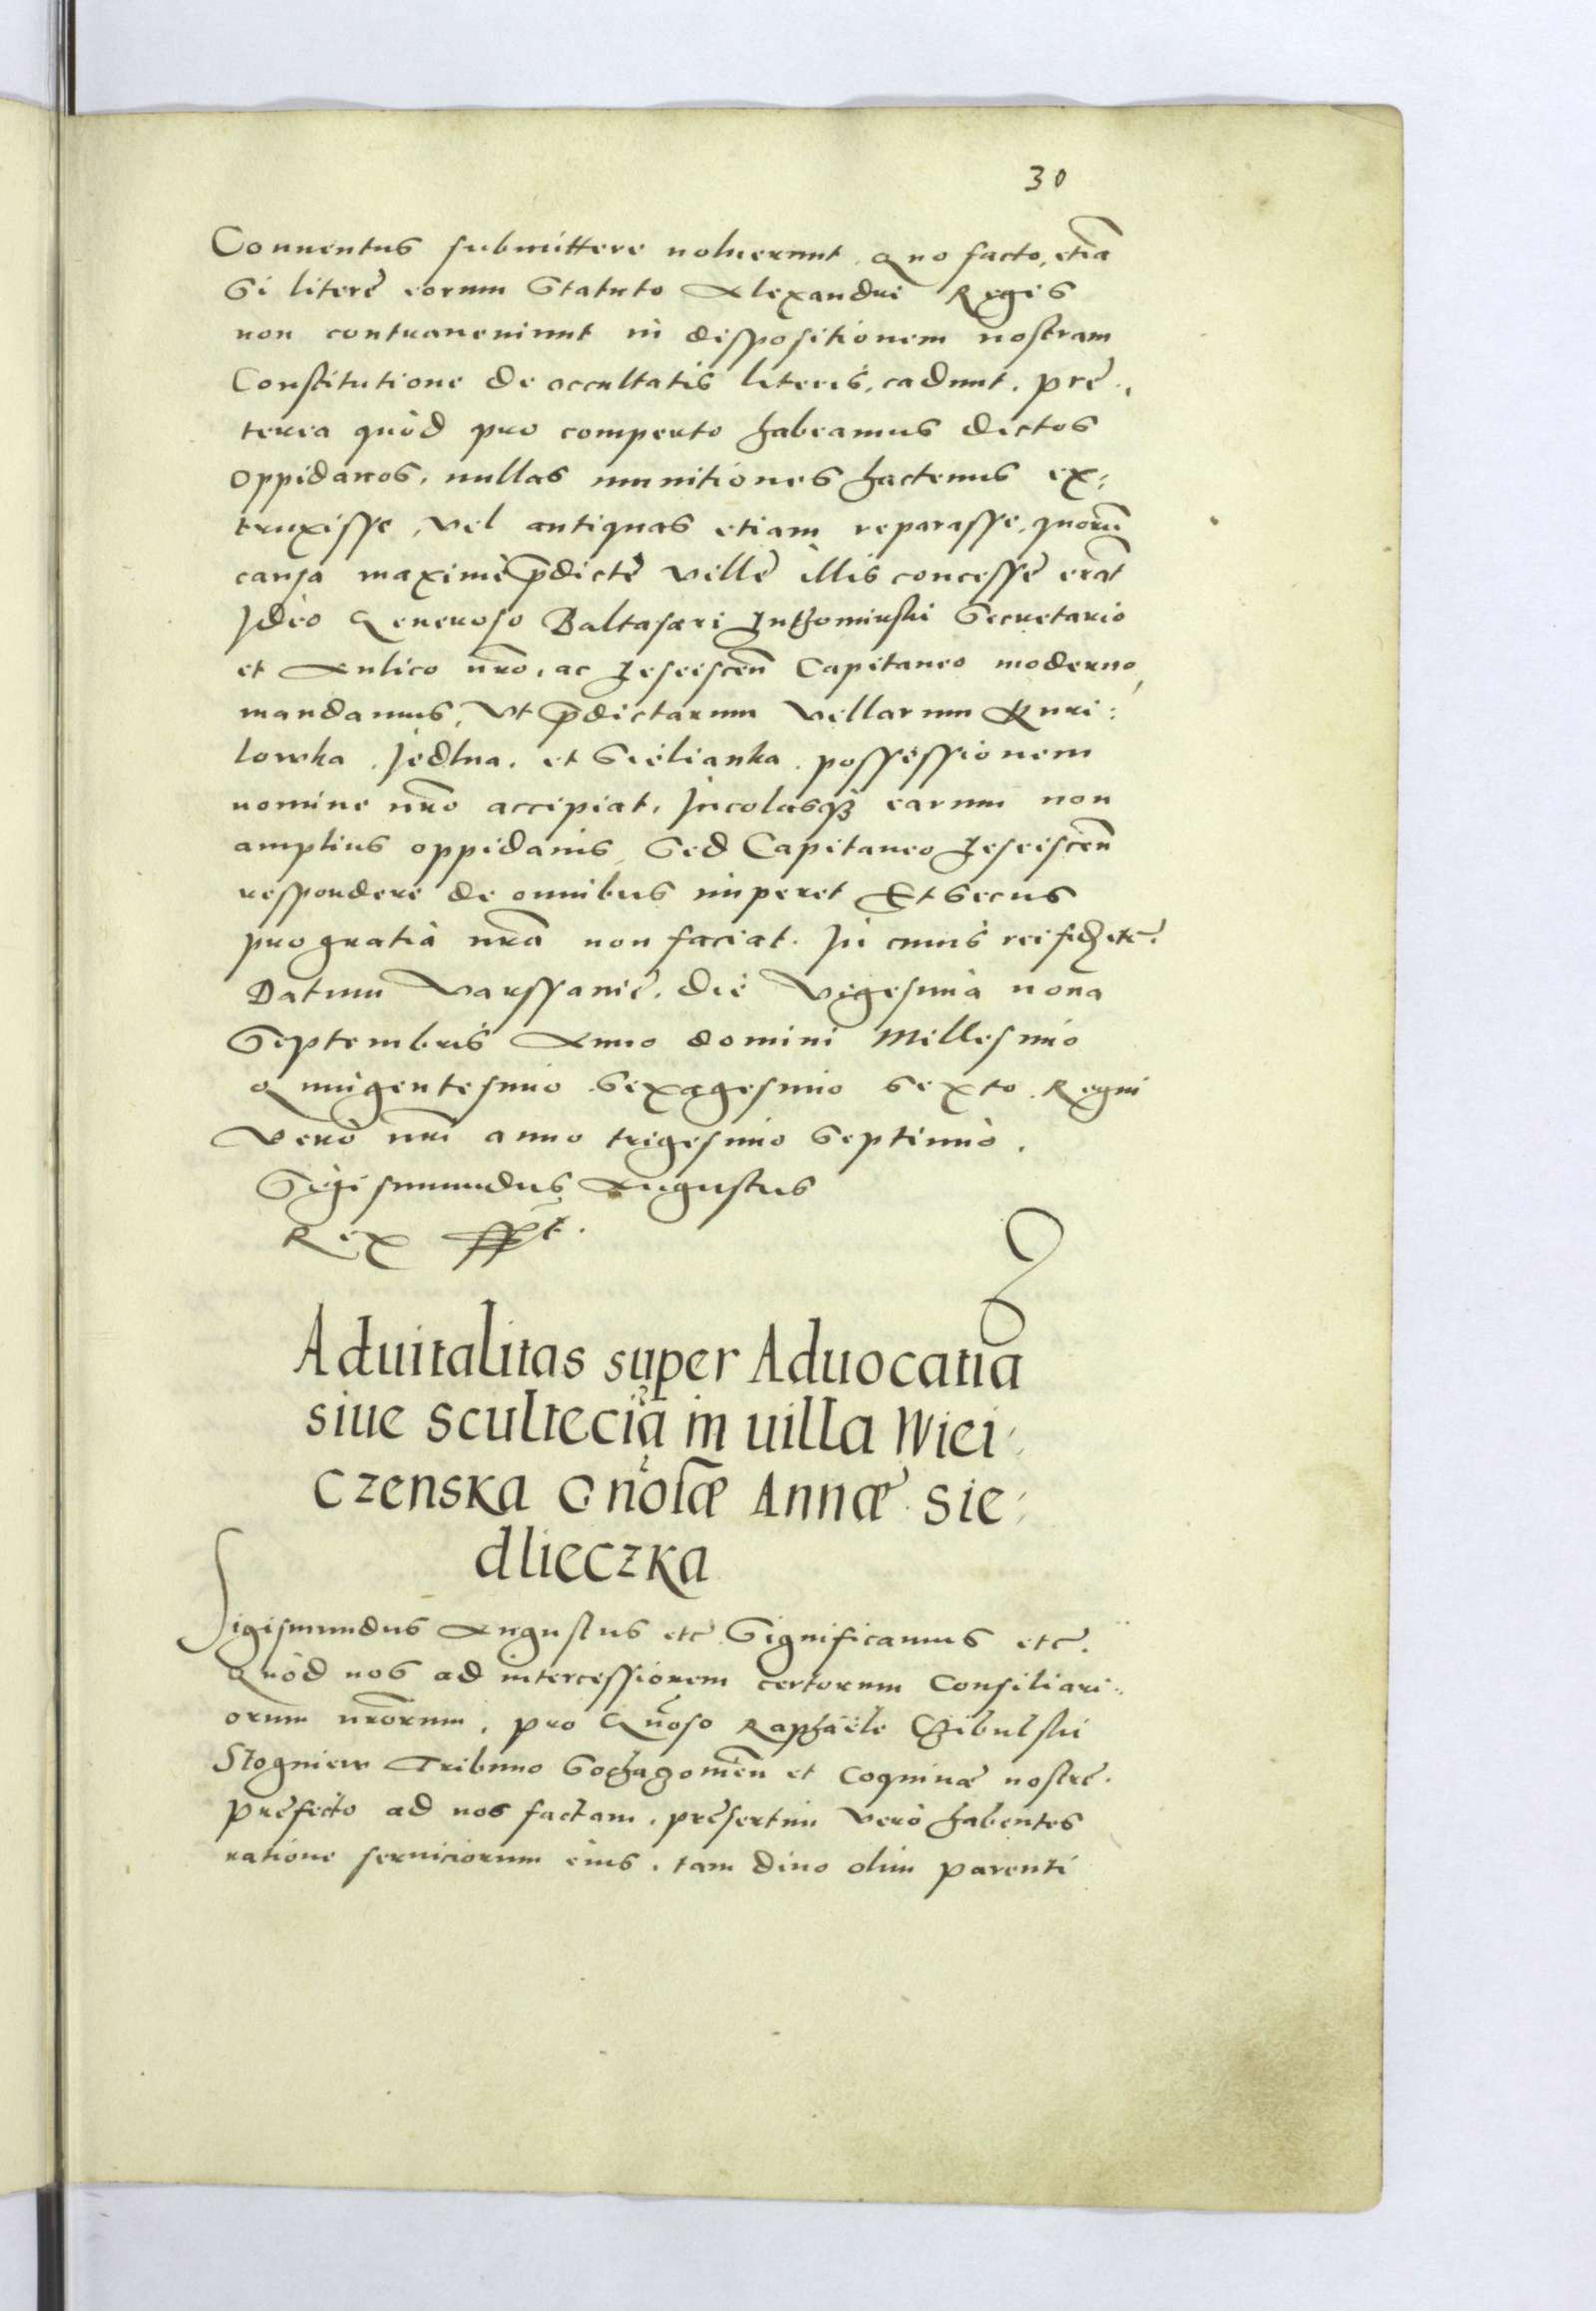 30
Conuentus submittere noluerunt. Quo facto, etiã
si literę eorum Statuto Alexandri Regis
non contraueniunt in dispositionem nostram
Constitutione de occultatis literis, cadunt. pre..
terea quòd pro comperto habeamus dictos
oppidanos, nullas munitiones hactenus ex:
truxisse, vel antiquas etiam reparasse, quorũ
causa maximè p̃dictę villę illis concessę erãt
Ideo Generoso Baltasari Luthomirski Secretario
et Aulico nr̃o, ac Leseiscen̄ Capitaneo moderno,
mandamus, Vt p̃dictarum villarum Kuri:
lowka, Jedlna, et Sielianka. possessionem
nomine nr̃o accipiat, Incolasq3 earum non
amplius oppidanis, Sed Capitaneo Leseiscen̄
respondere de omnibus imperet Et secus
pro gratia nr̃a non faciat. In cuius rei fidẽ etc̃.
Datum Varssauię. die Vigesima nona
Septembris Anno domini Millesimo
quingentesimo sexagesimo sexto. Regni
verò nr̃i anno trigesimo septimo.
Sigismundus Augustus
Rex sspt̃.
Aduitalitas super Aduocatia
siue scultecią in uilla Wiei:
czenska Gn̄osæ Annæ Sie:
dlieczka
Sigismundus Augustus etc̃ Significamus etc̃.
Quòd nos ad intercessionem certorum Consiliari..
orum nr̃orum, pro Gn̄oso Raphaële Chibulski
Stogniew Tribuno Sochazomien̄ et Coquinæ nostrę.
prefecto ad nos factam, presertim verò habentes
ratione seruiciorum eius, tam diuo olim parenti